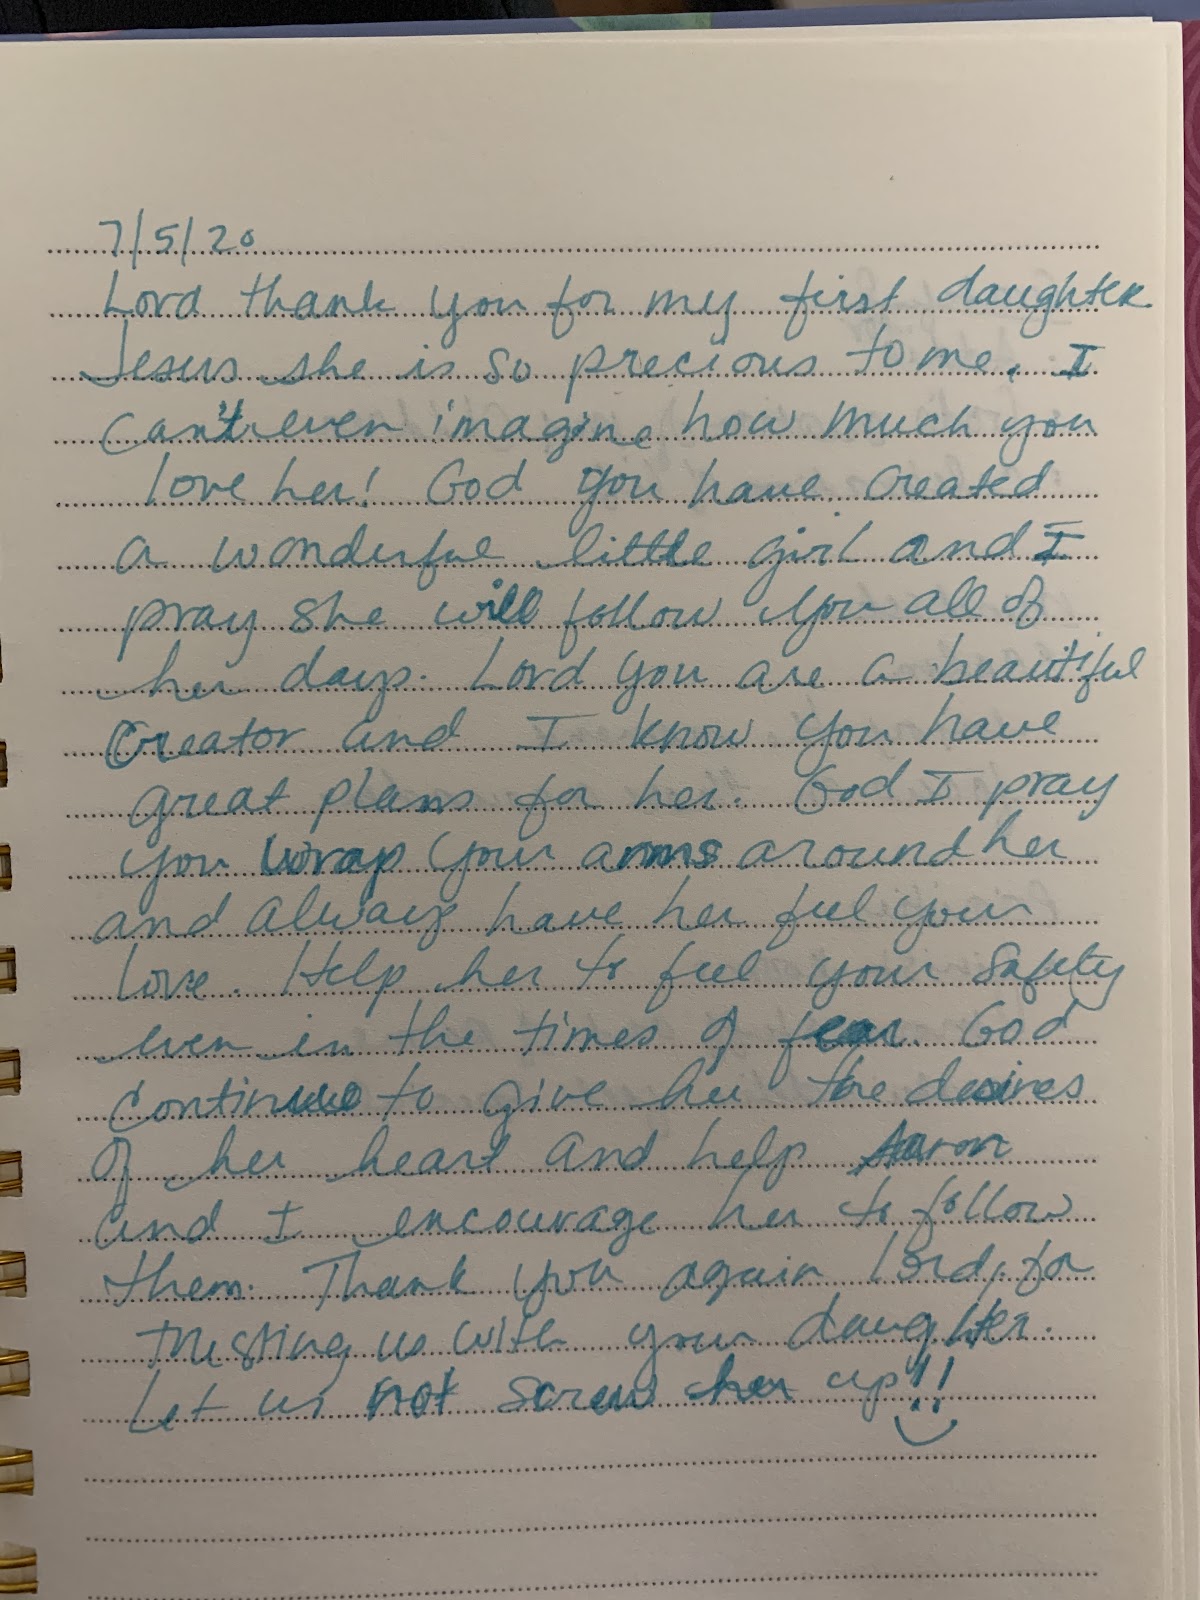 7/5/20
Lord thank you for my first daughter
Jesus she is so precious to me. I
can't even imagine how much you
love her! God you have created
a wonderful little girl and I
pray she will follow you all of
her days. Lord you are a beautiful
Creator and I know you have
great plans for her. God I pray
you wrap your arms around her
and always have her feel your
love. Help her to feel your safety
even in the times of fear. God
continue to give her the desires
of her heart and help Aaron
and I encourage her to follow
them. Thank you again Lord, for
trusting us with your daughter.
Let us not screw her up!!